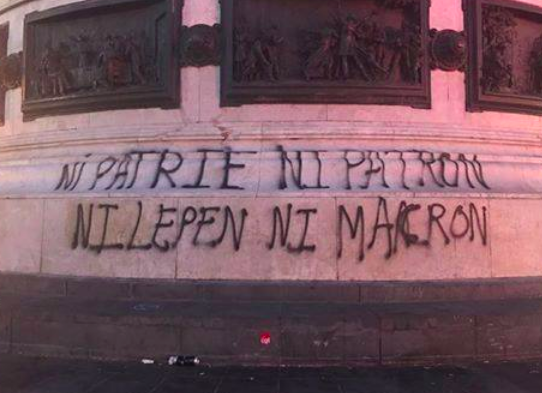 NI PATRIE NI PATRON
NI LEPEN NI MACRON